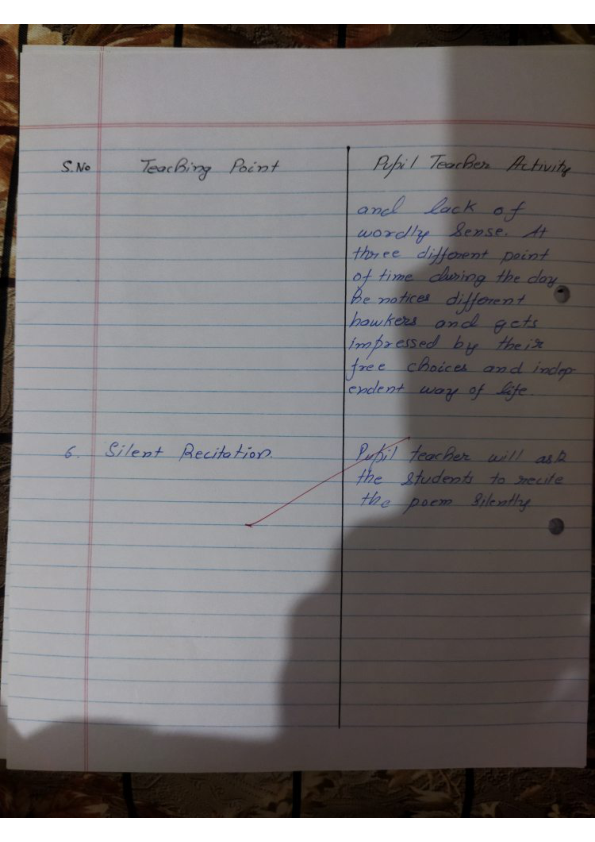 S.No Teaching Point Pupil Teacher Activity
and lack of
wordly sense. At
three different point
of time during the day
he notices different
hawkers and gets
impressed by their
free choices and indep-
endent way of life.
6. Silent Recitation. Pupil teacher will ask
the students to recite
the poem silently